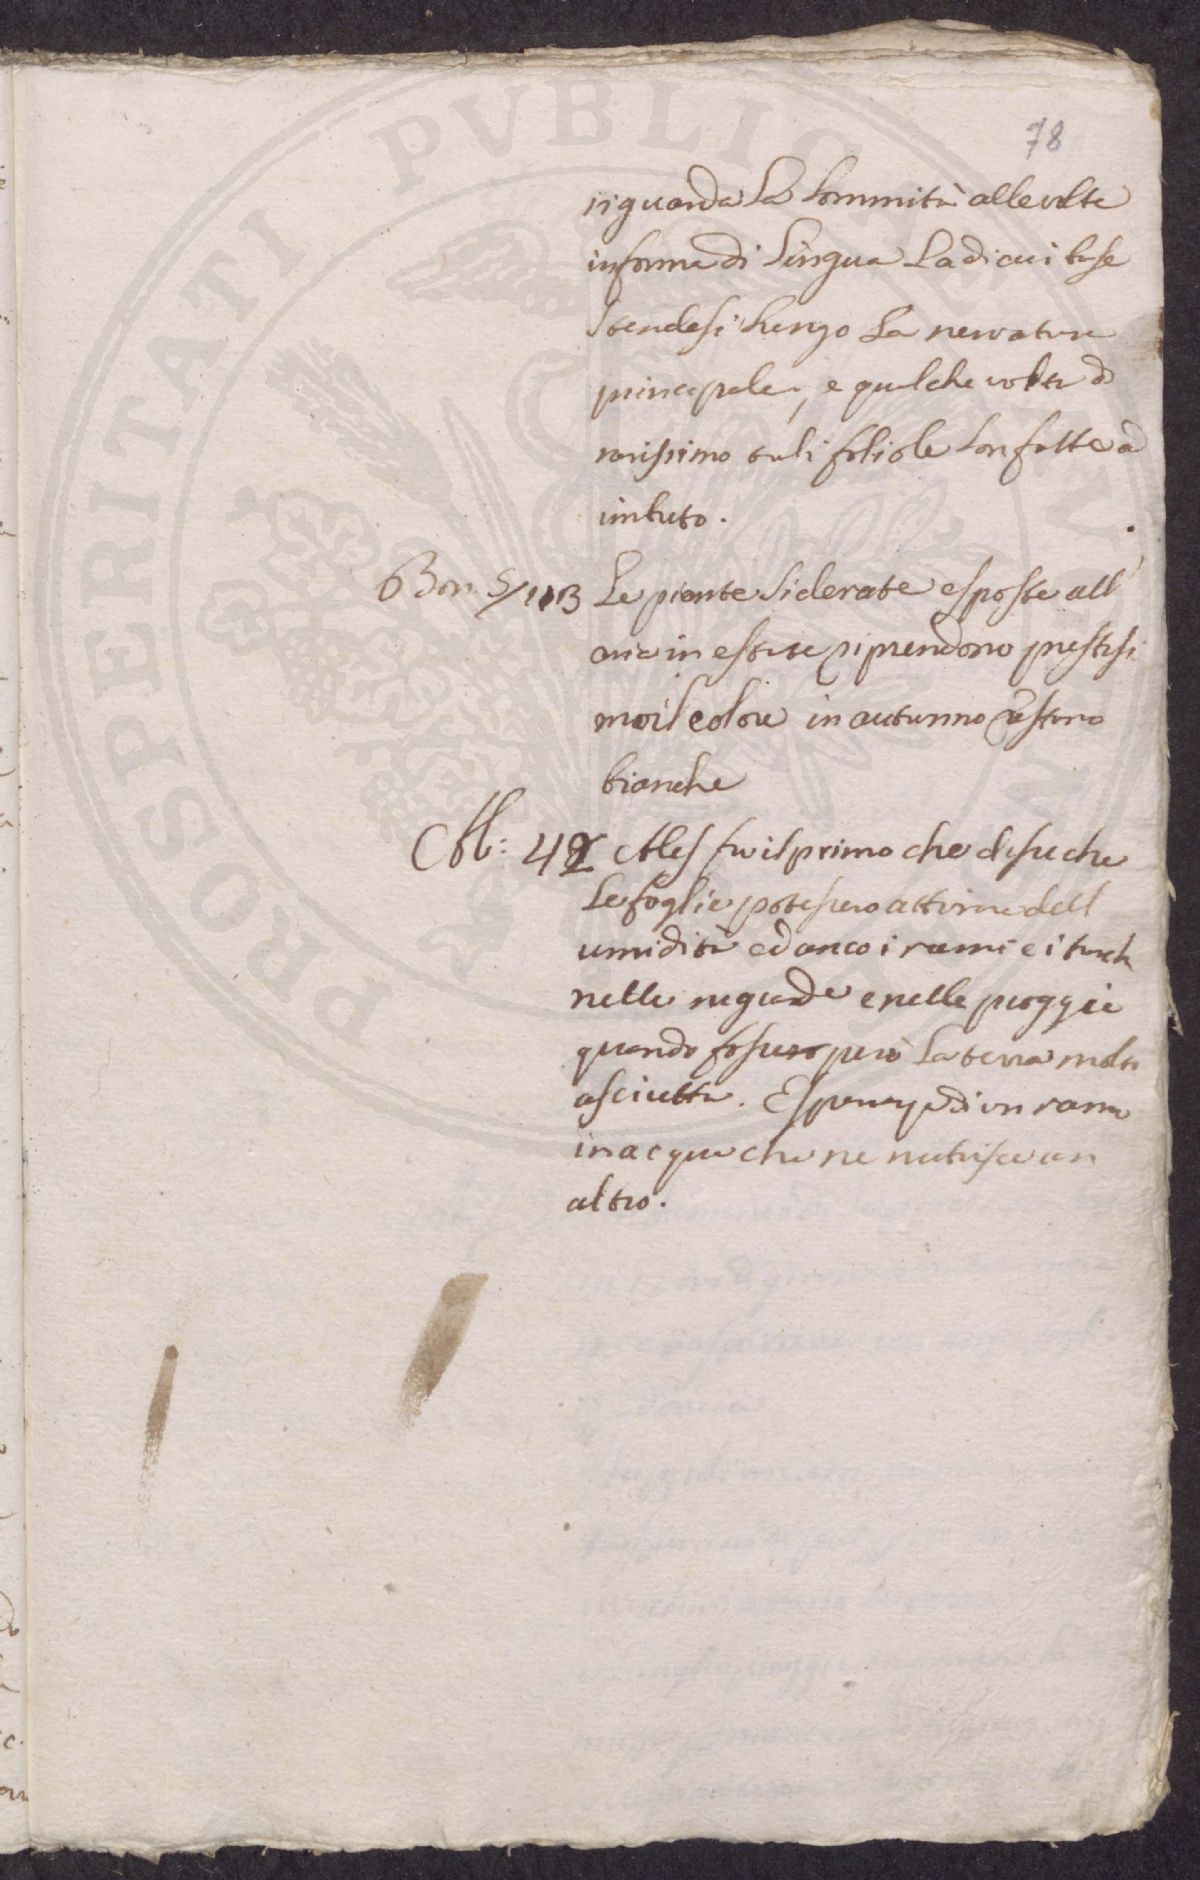 78
riguarda la sommità alle volte
in forma di lingua la di cui base
stendesi lungo la nervatura
principale, e qualche volta di
rarissimo tali foliole son fatte ad
imbuto.
Bon. 5/113 Le piante siderate esposte all'
aria in estate riprendono prestissi
mo il colore in autunno restano
bianche
M: 49 Ales fu il primo che disse che
le foglie potessero attirare dell
umidità ed anco i rami e i
nelle rugiade e nelle pioggie
quando fosse però la terra molto
asciutta. di un ramo
in acqua che ne nutrisce un
altro.
PROSPERITATI PVBLICAE